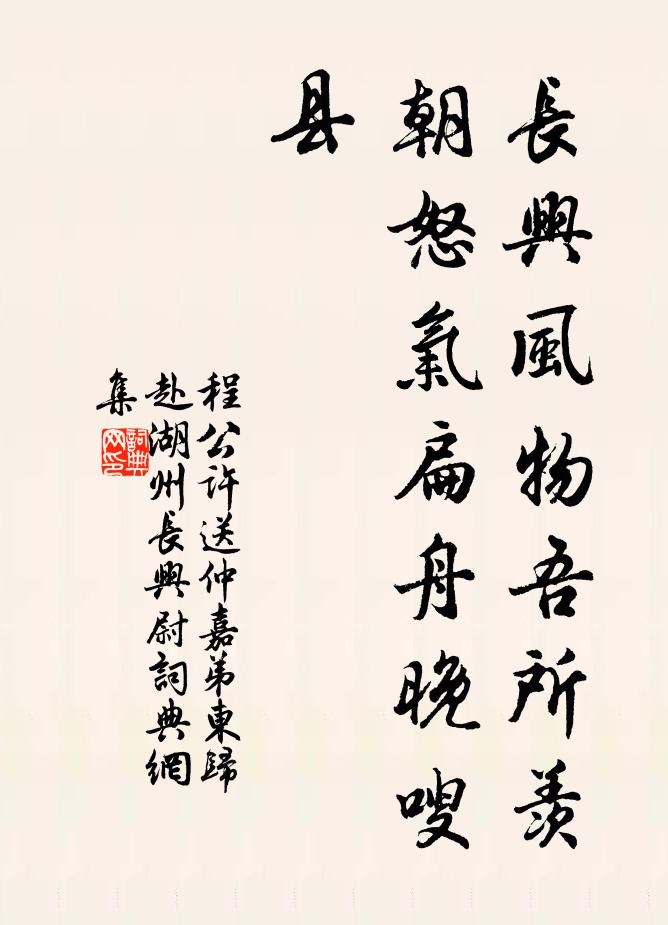 長興風物吾所羨
朝怒氣扁舟晚嗖
县
程公许送仲嘉弟東歸
赴湖州長興尉詞典網
集
詞典
网印